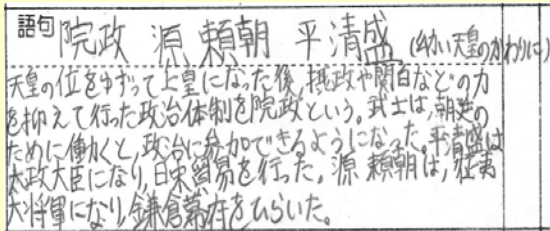 語句 院政 源頼朝 平清盛 (幼い天皇のかわりに)
天皇の位をゆずって上皇になった後,摂政や関白などの力
を抑えて行った政治体制を院政という。武士は,朝廷の
ために働くと,政治に参加できるようになった。平清盛は
太政大臣になり,日宋貿易を行った。源頼朝は,征夷
大将軍になり,鎌倉幕府をひらいた。